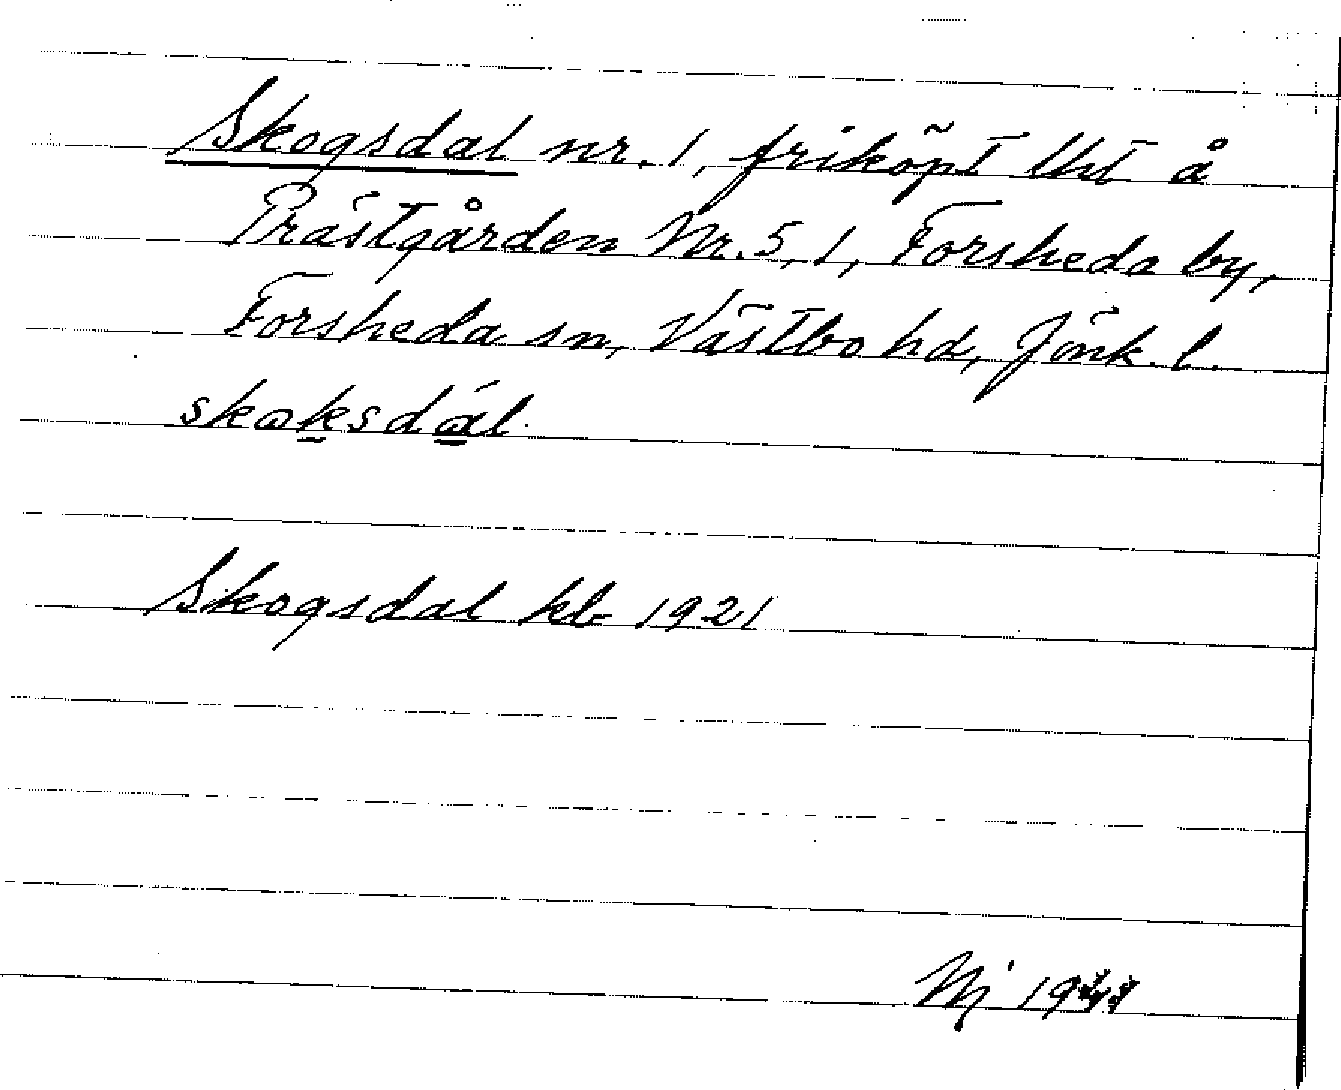 Skogsdal nr. 1, friköpt lht å
Prästgården Nr. 5, 1, Forsheda by,
Forsheda sn, Västbo hd, Jönk. l.
skoksdál.
Skogsdal kb 1921
Nj 19